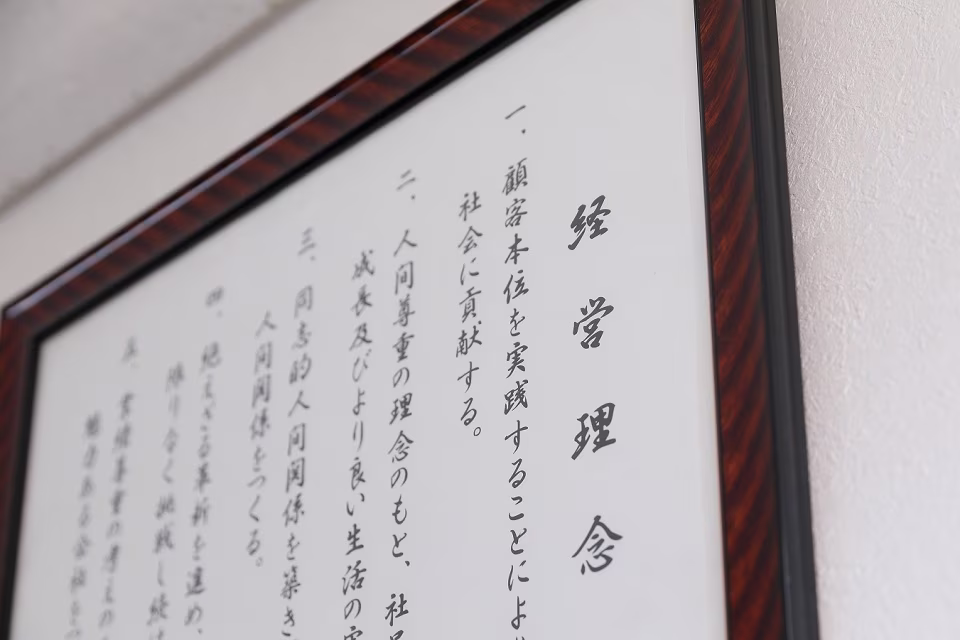 経営理念
一、顧客本位を実践することにより
社会に貢献する。
二、人間尊重の理念のもと、社員
成長及びより良い生活の実
三、同志的人間関係を築き
人間関係をつくる。
四、絶えざる革新を進め、
限りなく挑戦し続け
五、業績尊重の考えの
魅力ある会社をつ